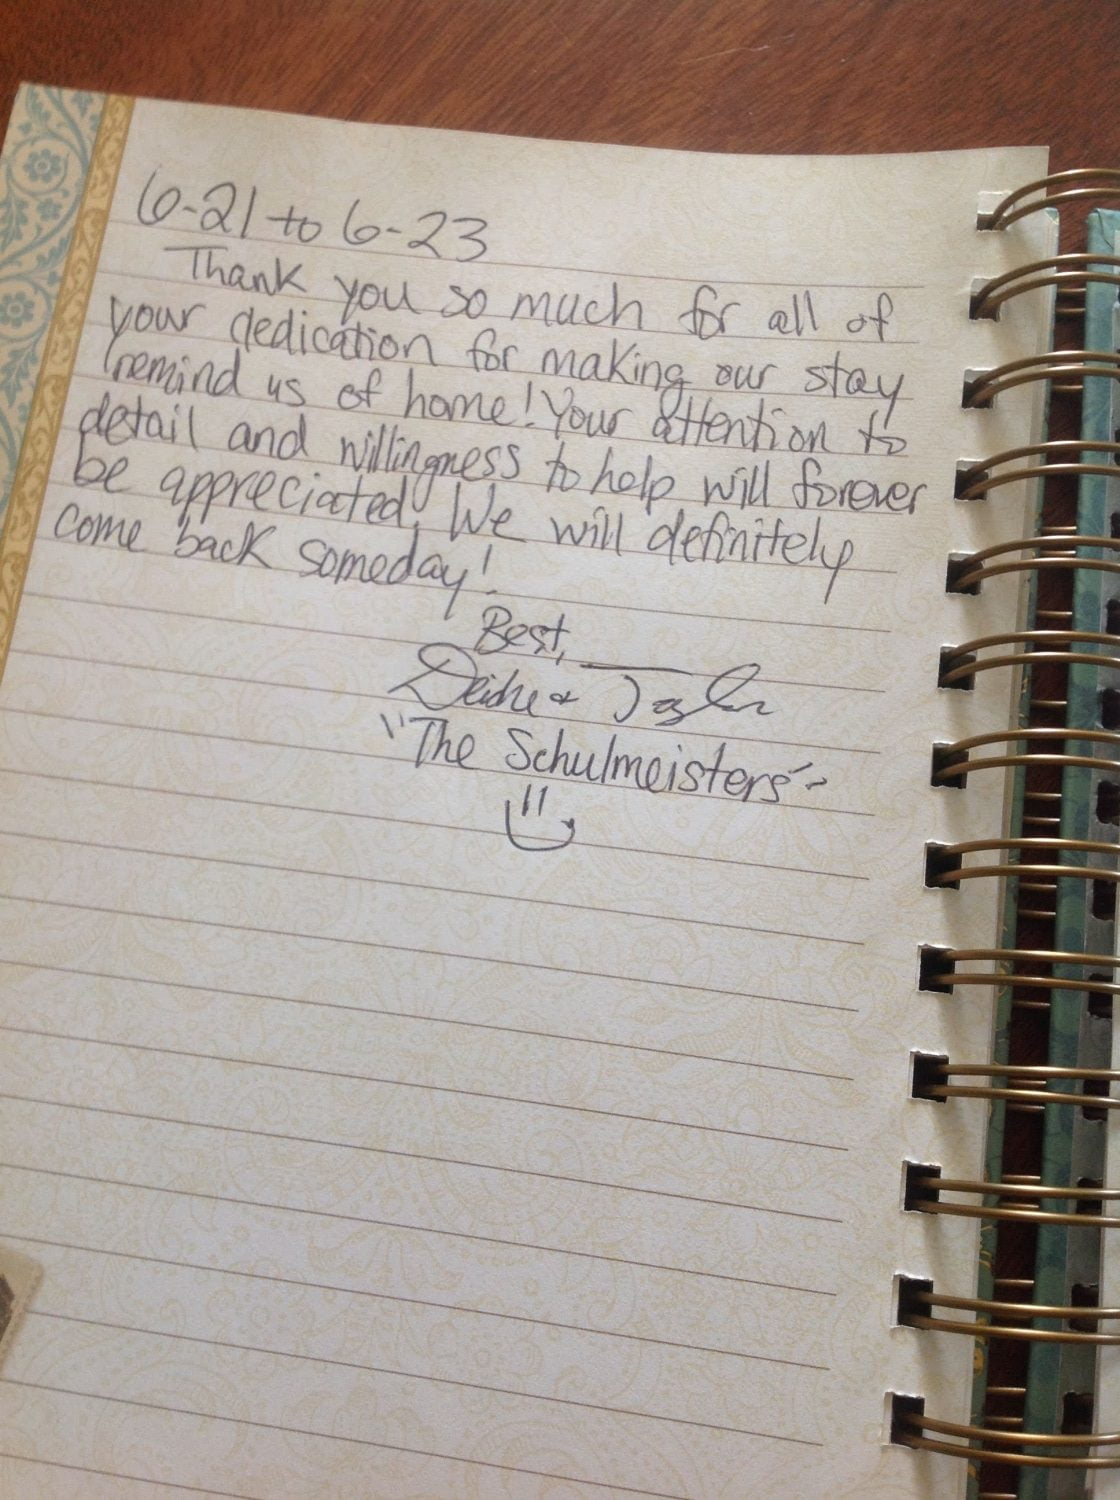 6-21 to 6-23
Thank you so much for all of
your dedication for making our stay
remind us of home! Your attention to
detail and willingness to help will forever
be appreciated. We will definitely
come back someday!
Best,
& Taylor
"The Schulmeisters"